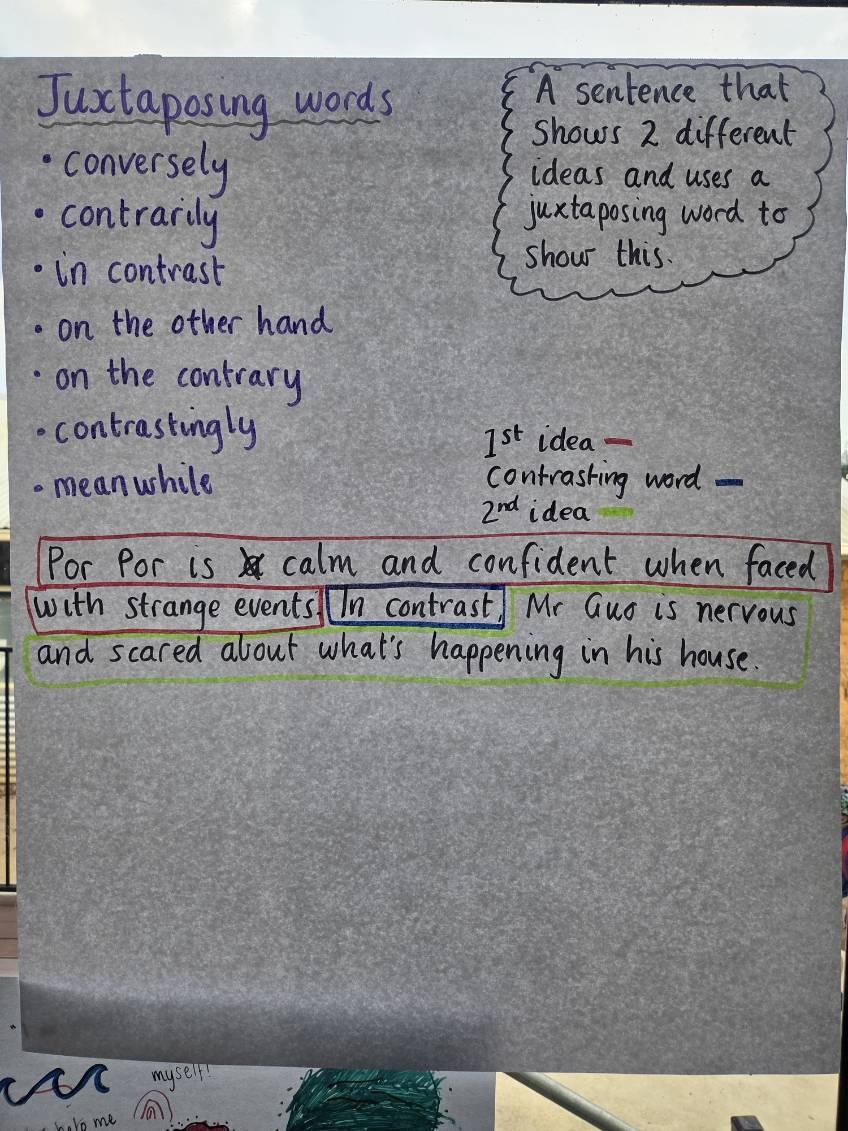 Juxtaposing words
• conversely
• contrarily
• in contrast
• on the other hand
• on the contrary
• contrastingly
• meanwhile
A sentence that
shows 2 different
ideas and uses a
juxtaposing word to
show this.
1st idea
Contrasting word
2nd idea
Por Por is calm and confident when faced
with strange events. In contrast, Mr Guo is nervous
and scared about what's happening in his house.
myself!
help me